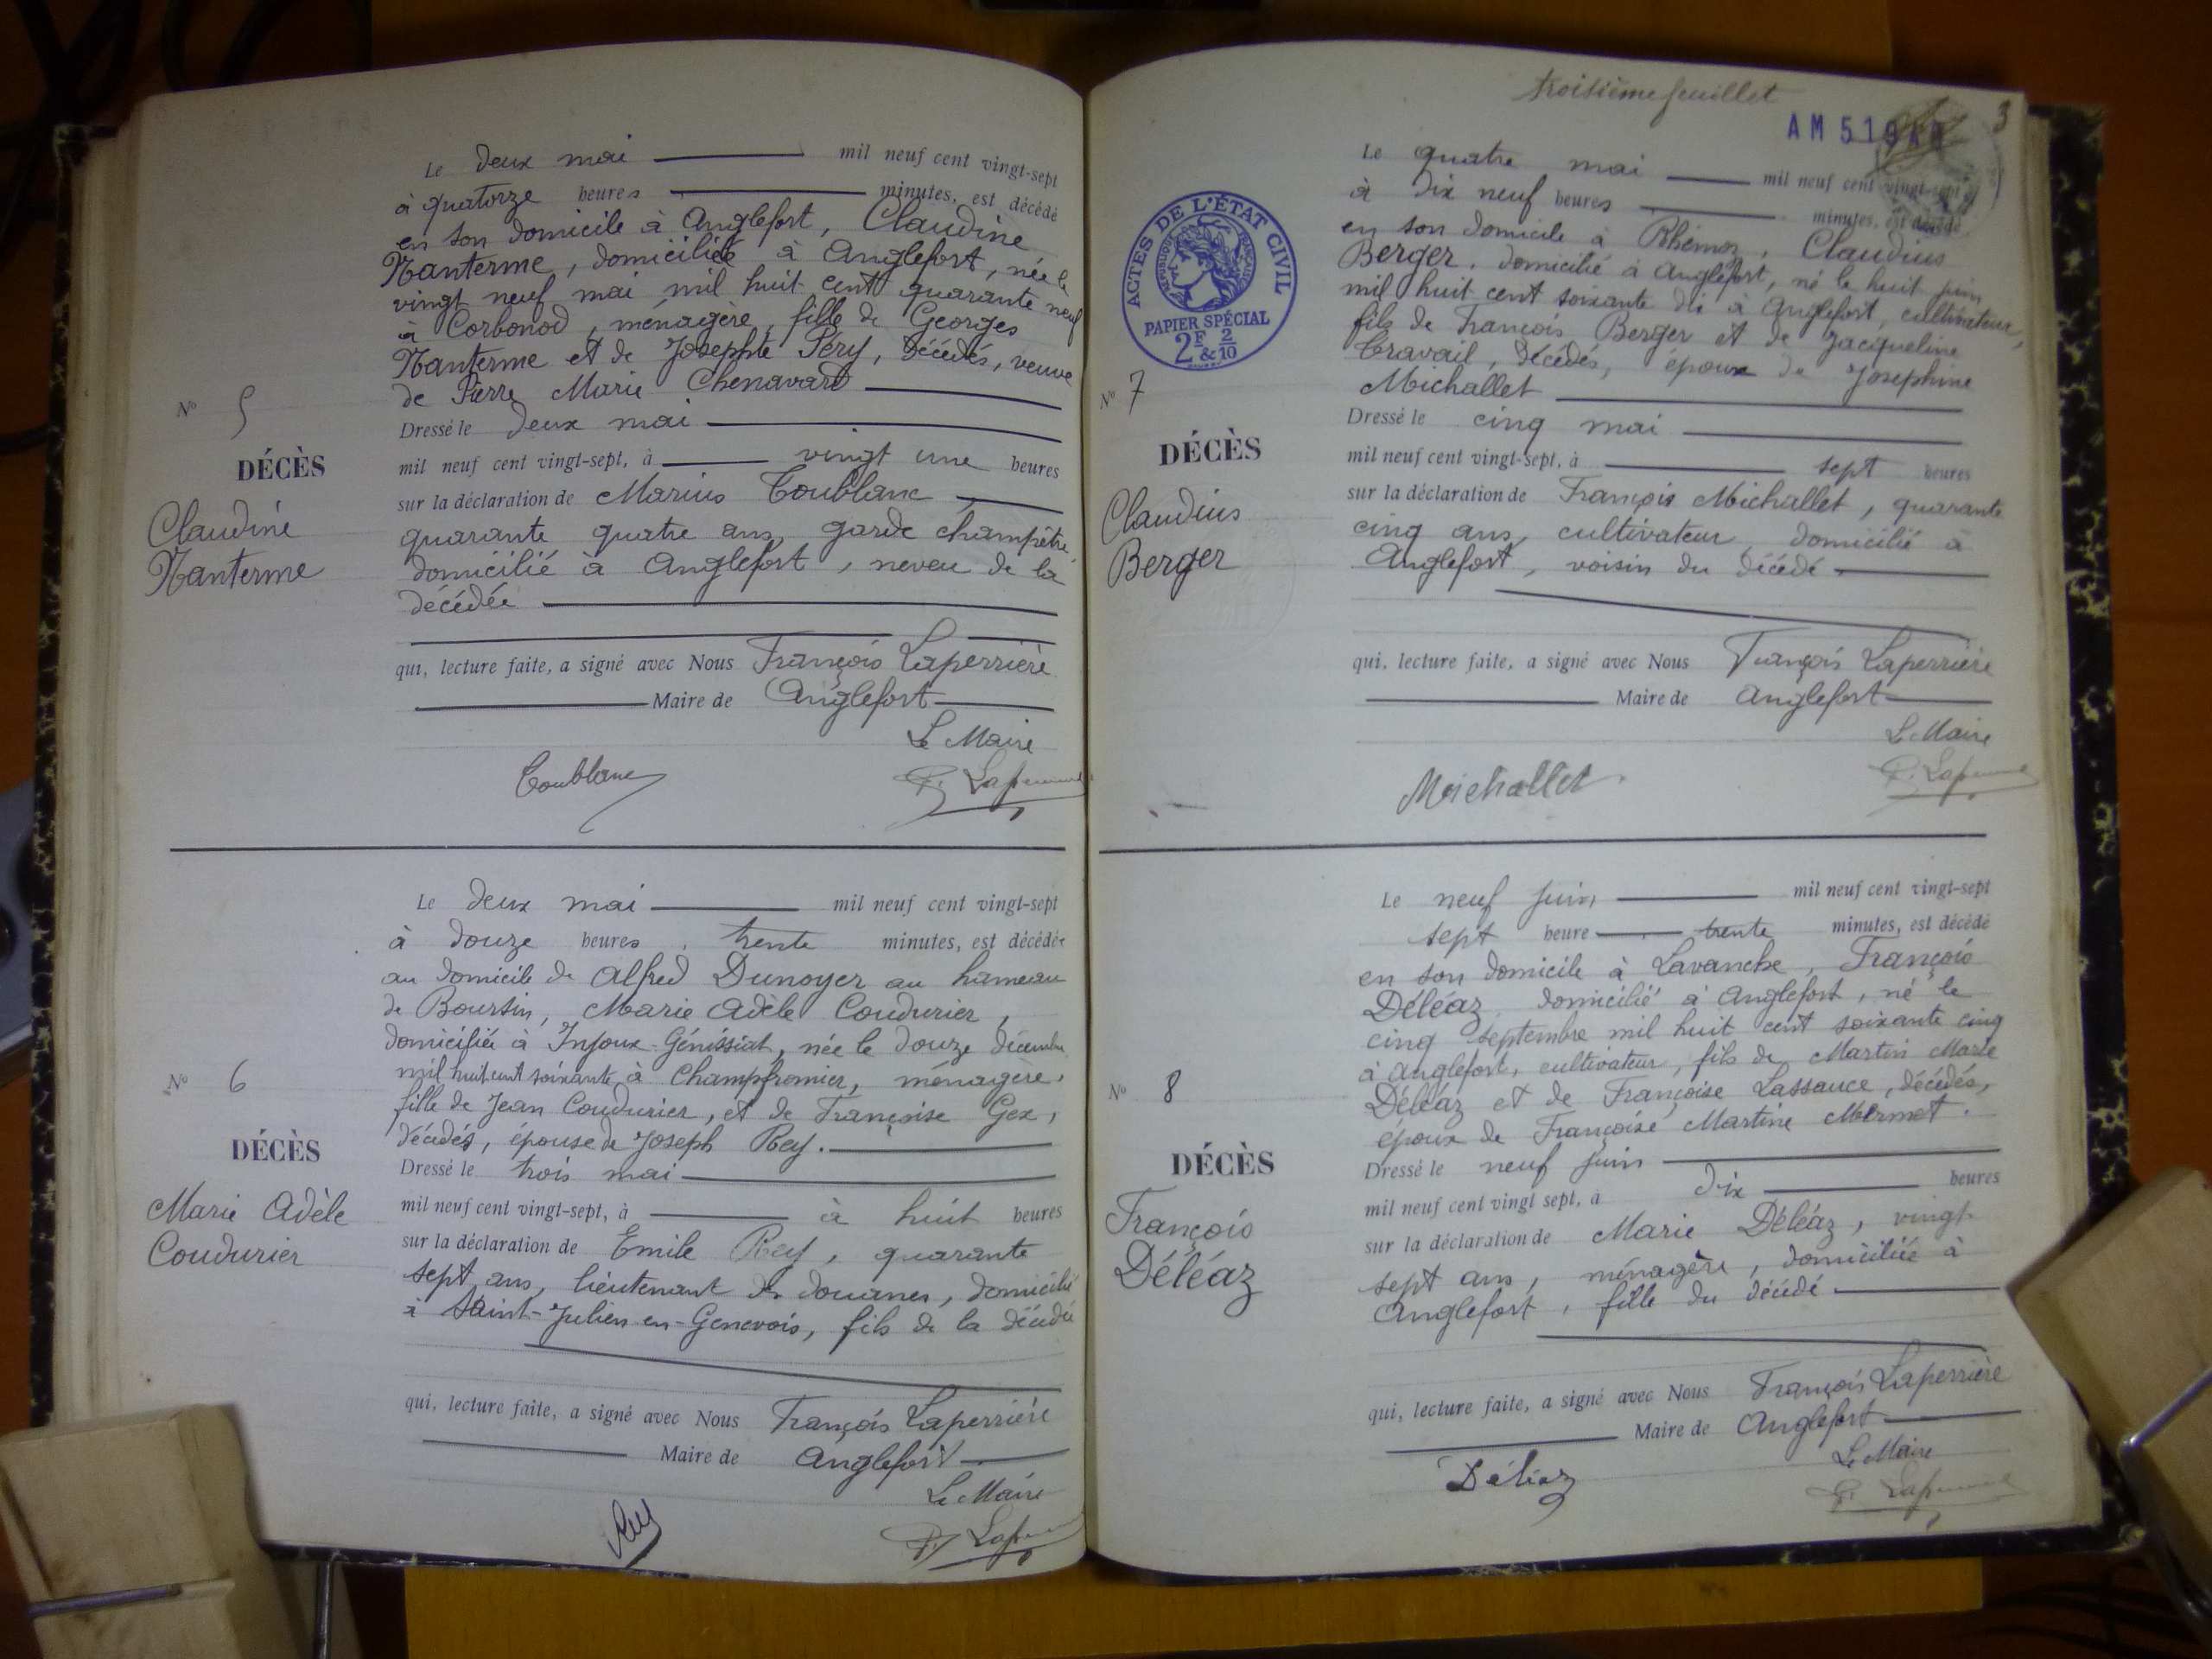 Le deux mai mil neuf cent vingt-sept
à quatorze heures minutes, est décédé
en son domicile à Anglefort, Claudine
Nanterme, domiciliée à Anglefort, née le
vingt neuf mai mil huit cent quarante neuf
à Corbonod, ménagère, fille de Georges
Nanterme et de Josephte Péry, décédés, veuve
de Pierre Marie Chenavard
Nº 5
Dressé le deux mai
DÉCÈS
mil neuf cent vingt-sept, à vingt une heures
Claudine
Nanterme
sur la déclaration de Marius Toublanc,
quarante quatre ans, garde champêtre
domicilié à Anglefort, neveu de la
décédée
qui, lecture faite, a signé avec Nous François Laperrière
Maire de Anglefort
Le Maire
Toublanc
F. Laperrière
Le deux mai mil neuf cent vingt-sept
à douze heures, trente minutes, est décédée
au domicile de Alfred Dunoyer au hameau
de Boursin, Marie Adèle Coudurier,
domiciliée à Injoux-Génissiat, née le douze décembre
mil huit cent soixante à Champfromier, ménagère,
fille de Jean Coudurier, et de Françoise Gex,
décédés, épouse de Joseph Rey.
Nº 6
DÉCÈS
Marie Adèle
Coudurier
Dressé le trois mai
mil neuf cent vingt-sept, à à huit heures
sur la déclaration de Emile Rey, quarante
sept ans, lieutenant de douanes, domicilié
à Saint-Julien-en-Genevois, fils de la décédée
qui, lecture faite, a signé avec Nous François Laperrière
Maire de Anglefort
Le Maire
Rey
F. Laperrière
troisième feuillet
3
AM 519
ACTES DE L'ÉTAT CIVIL
RÉPUBLIQUE FRANÇAISE
PAPIER SPÉCIAL
2F & 2/10
Le quatre mai mil neuf cent vingt-sept
à dix neuf heures minutes, est décédé
en son domicile à Rhémoz, Claudius
Berger, domicilié à Anglefort, né le huit juin
mil huit cent soixante dix à Anglefort, cultivateur,
fils de François Berger et de Jacqueline
Travail, décédés, époux de Josephine
Michallet
Nº 7
DÉCÈS
Claudius
Berger
Dressé le cinq mai
mil neuf cent vingt-sept, à sept heures
sur la déclaration de François Michallet, quarante
cinq ans, cultivateur domicilié à
Anglefort, voisin du décédé
qui, lecture faite, a signé avec Nous François Laperrière
Maire de Anglefort
Le Maire
Michallet
F. Laperrière
Le neuf juin mil neuf cent vingt-sept
sept heure trente minutes, est décédé
en son domicile à Lavanche, François
Déléaz domicilié à Anglefort, né le
cinq septembre mil huit cent soixante cinq
à Anglefort, cultivateur, fils de Martin Marie
Déléaz et de Françoise Lassauce, décédés,
époux de Françoise Martine Mermet.
Nº 8
DÉCÈS
François
Déléaz
Dressé le neuf juin
mil neuf cent vingt sept, à dix heures
sur la déclaration de Marie Déléaz, vingt
sept ans, ménagère, domiciliée à
Anglefort, fille du décédé
qui, lecture faite, a signé avec Nous François Laperrière
Maire de Anglefort
Le Maire
Déléaz
F. Laperrière